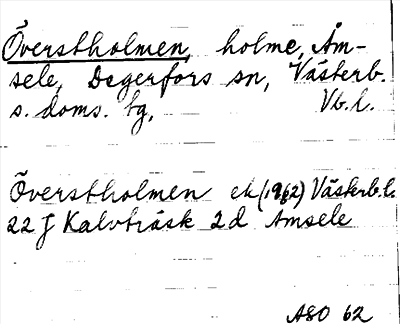 Överstholmen, holme, Åm-
sele, Degerfors sn, Västerb.
s. doms. tg, Vb. l.
Överstholmen ek (1962) Västerb. l.
22 J Kalvträsk 2d Åmsele
ASO 62